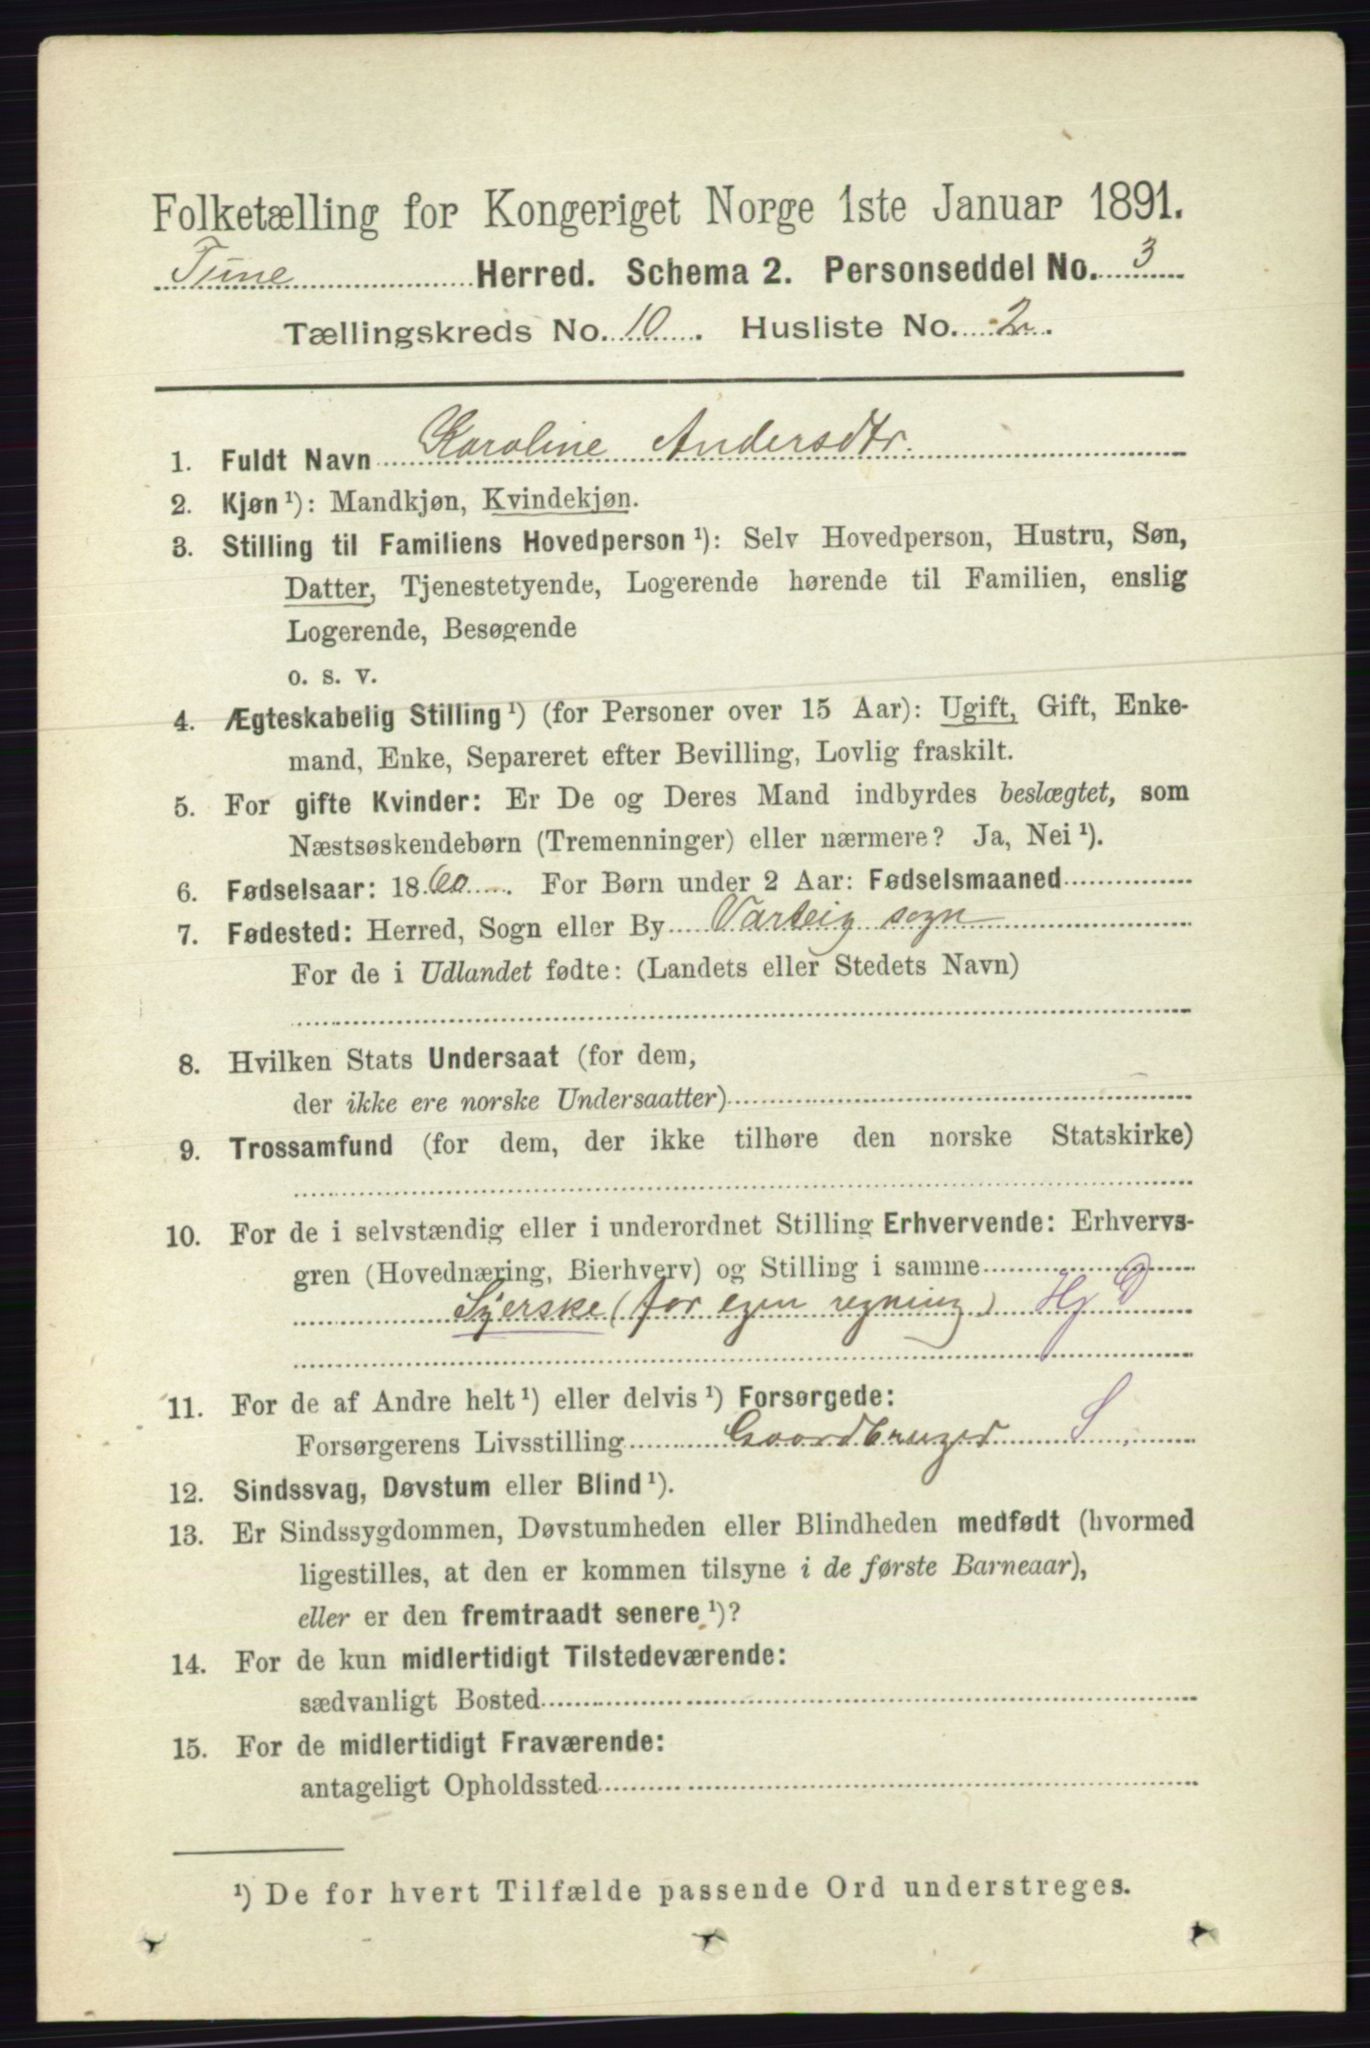 Folketælling for Kongeriget Norge 1ste Januar 1891.
Tune Herred. Schema 2. Personseddel No. 3
Tællingskreds No. 10. Husliste No. 2.
1. Fuldt Navn Karoline Andersdtr.
2. Kjøn¹): Mandkjøn, Kvindekjøn.
3. Stilling til Familiens Hovedperson¹): Selv Hovedperson, Hustru, Søn,
Datter, Tjenestetyende, Logerende hørende til Familien, enslig
Logerende, Besøgende
o. s. v.
4. Ægteskabelig Stilling¹) (for Personer over 15 Aar): Ugift, Gift, Enke-
mand, Enke, Separeret efter Bevilling, Lovlig fraskilt.
5. For gifte Kvinder: Er De og Deres Mand indbyrdes beslægtet, som
Næstsøskendebørn (Tremenninger) eller nærmere? Ja, Nei¹).
6. Fødselsaar: 1860. For Børn under 2 Aar: Fødselsmaaned
7. Fødested: Herred, Sogn eller By Varteig sogn
For de i Udlandet fødte: (Landets eller Stedets Navn)
8. Hvilken Stats Undersaat (for dem,
der ikke ere norske Undersaatter)
9. Trossamfund (for dem, der ikke tilhøre den norske Statskirke)
10. For de i selvstændig eller i underordnet Stilling Erhvervende: Erhvervs-
gren (Hovednæring, Bierhverv) og Stilling i samme
Syerske (for egen regning) Hj D
11. For de af Andre helt¹) eller delvis¹) Forsørgede:
Forsørgerens Livsstilling Gaardbruger S
12. Sindssvag, Døvstum eller Blind¹).
13. Er Sindssygdommen, Døvstumheden eller Blindheden medfødt (hvormed
ligestilles, at den er kommen tilsyne i de første Barneaar),
eller er den fremtraadt senere¹)?
14. For de kun midlertidigt Tilstedeværende:
sædvanligt Bosted
15. For de midlertidigt Fraværende:
antageligt Opholdssted
¹) De for hvert Tilfælde passende Ord understreges.